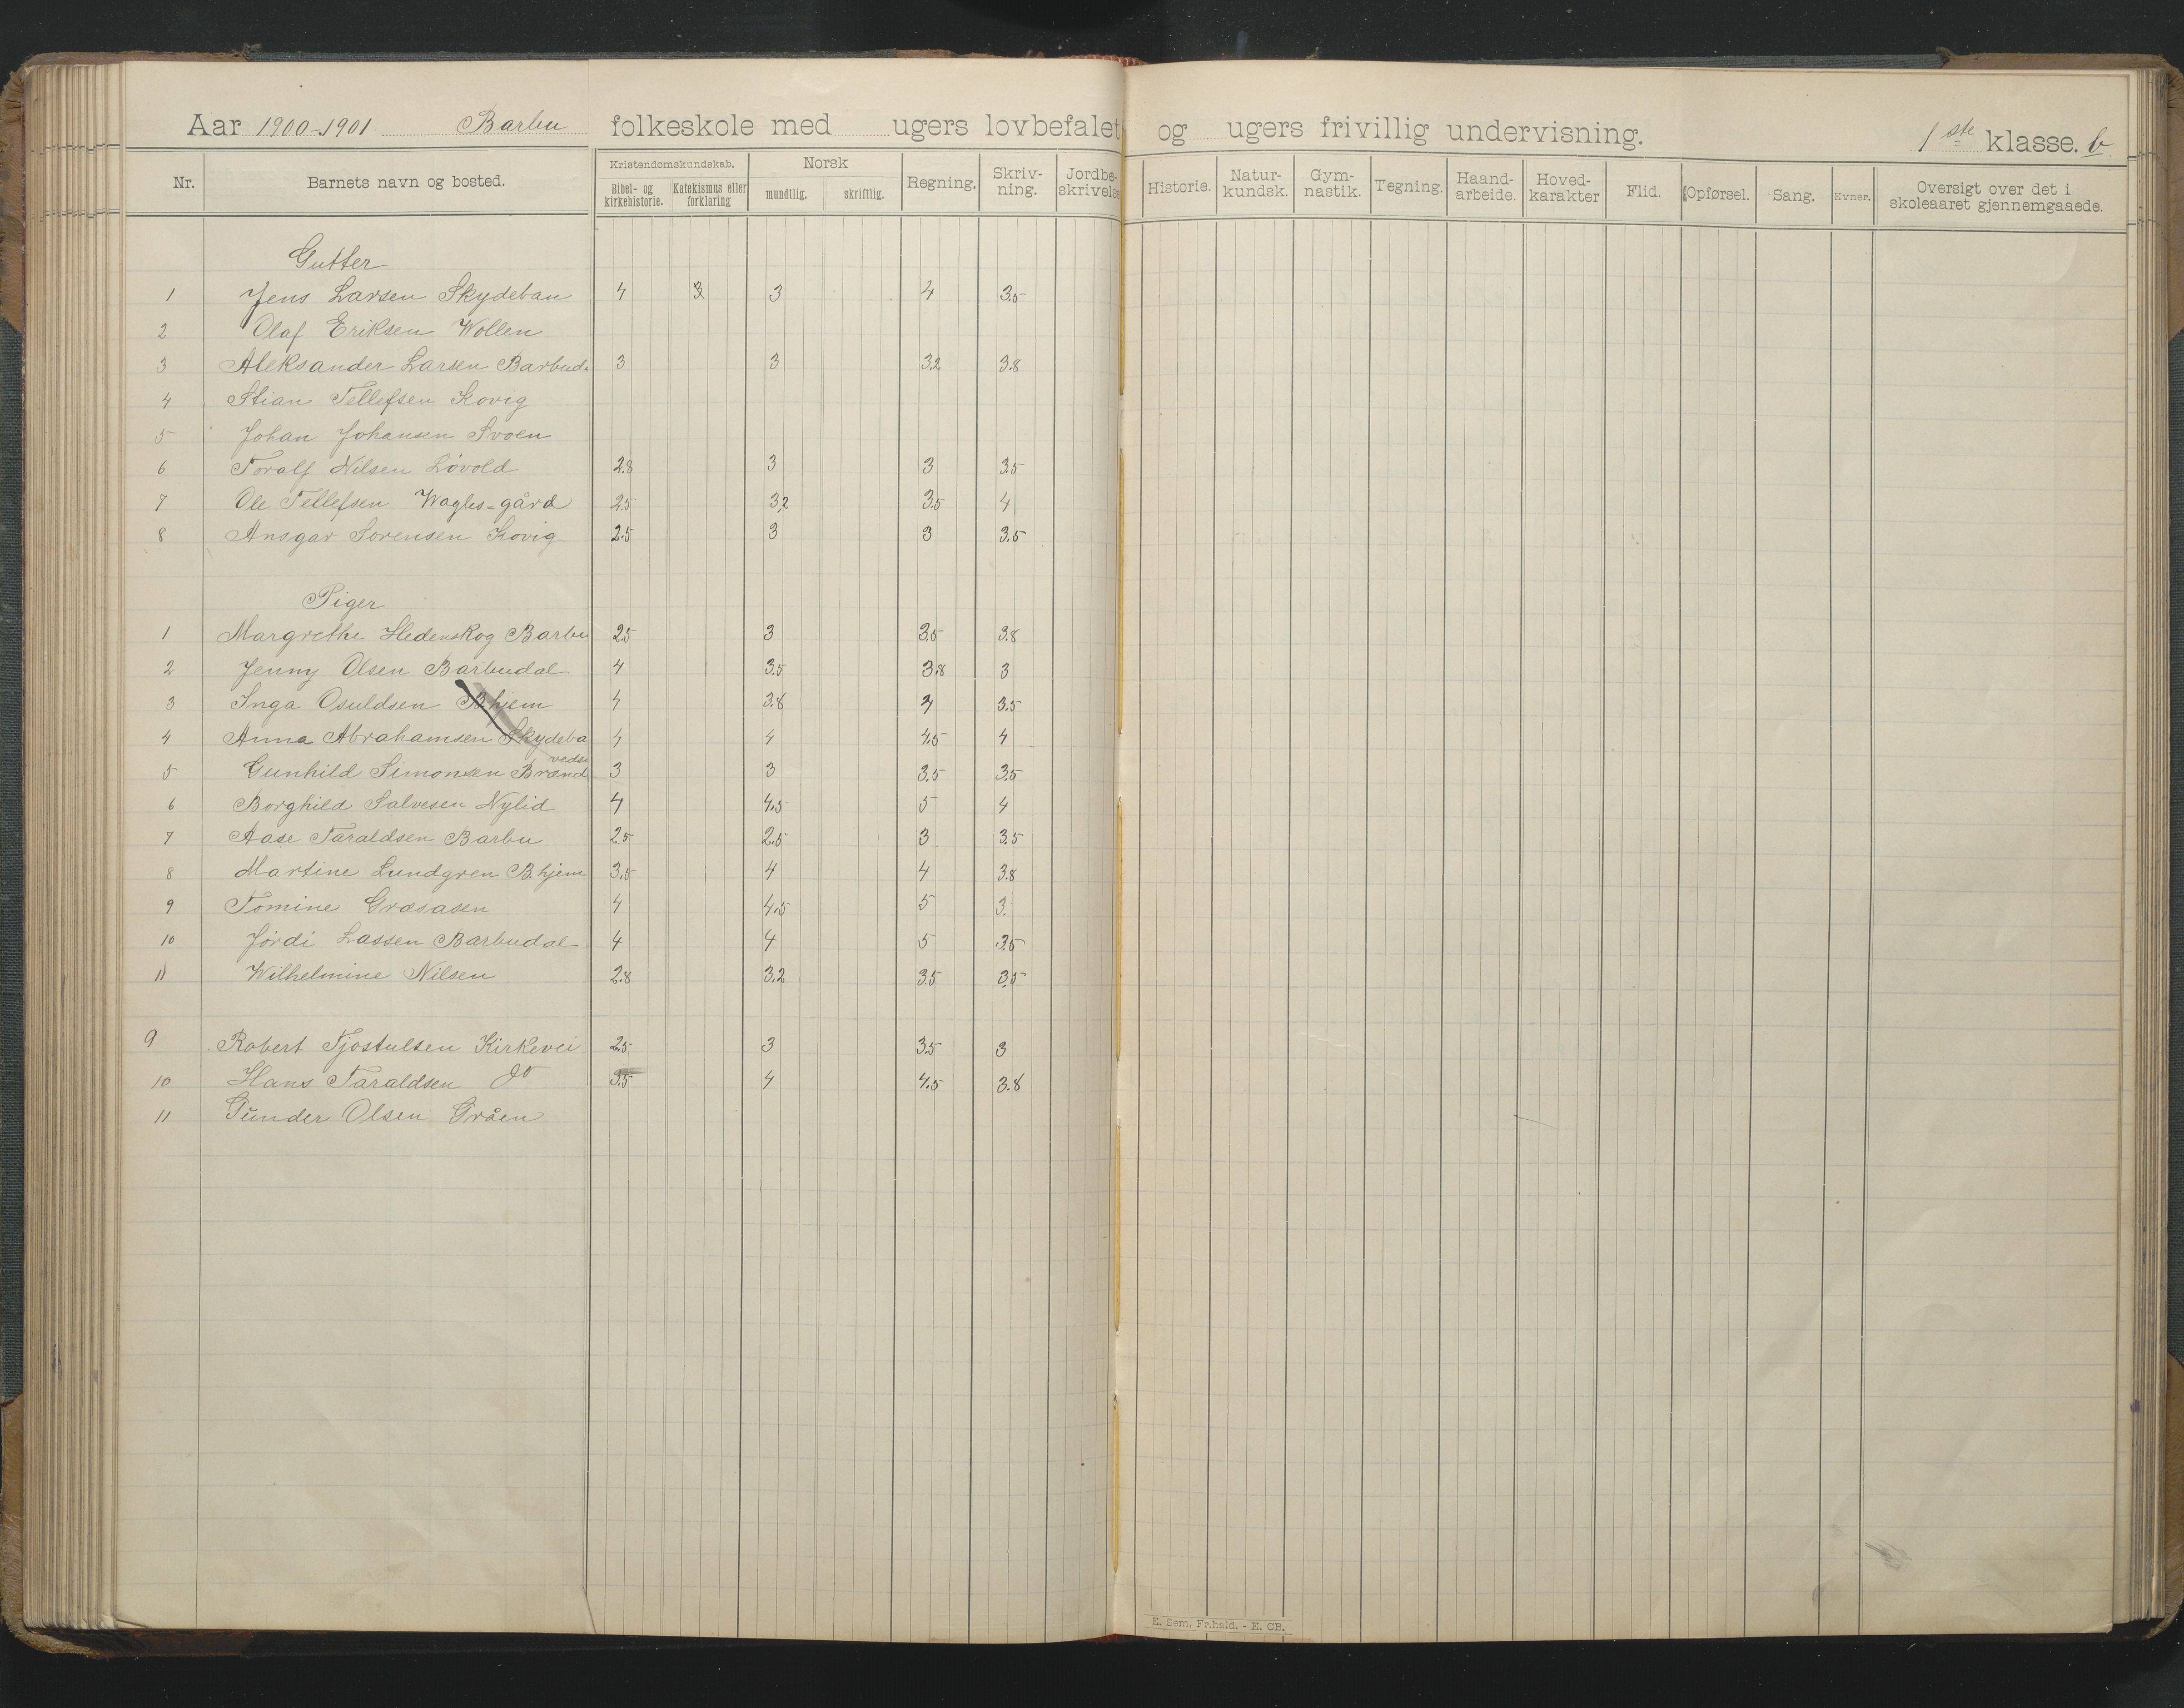 Aar 1900-1901 Barbu folkeskole med ugers lovbefalet og ugers frivillig undervisning. 1ste klasse. b.
Nr. Barnets navn og bosted. Kristendomskundskab. Bibel- og kirkehistorie. Katekismus eller forklaring Norsk mundtlig. skriftlig. Regning. Skriv-ning. Jordbe-skrivelse Historie. Natur-kundsk. Gym-nastik. Tegning. Haand-arbeide. Hoved-karakter Flid. Opførsel. Sang. Evner. Oversigt over det i skoleaaret gjennemgaaede.
Gutter
1 Jens Larsen Skydeban 4 3 3 4 3.5
2 Olaf Eriksen Wollen
3 Aleksander Larsen Barbud. 3 3 3.2 3.8
4 Stian Tellefsen Kovig
5 Johan Johansen Svoen
6 Toralf Nilsen Løvold 2.8 3 3 3.5
7 Ole Tellefsen Wagles-gård 2.5 3.2 3.5 4
8 Ansgar Sørensen Kovig 2.5 3 3 3.5
Piger
1 Margrethe Hedenskog Barbu 2.5 3 3.5 3.8
2 Jenny Olsen Barbudal 4 3.5 3.8 3
3 Inga Osuldsen B.hjem 4 3.8 4 3.5
4 Anna Abrahamsen Skydeba 4 4 4.5 4
5 Gunhild Simonsen Brænd 3 3 3.5 3.5
6 Borghild Salvesen Nylid 4 4.5 5 4
7 Aase Taraldsen Barbu 2.5 2.5 3 3.5
8 Martine Lundgren B.hjem 3.5 4 4 3.8
9 Tomine Græsasen 4 4.5 5 3.
10 Jørdi Lassen Barbudal 4 4 5 3.5
11 Wilhelmine Nilsen 2.8 3.2 3.5 3.5
9 Robert Tjøstulsen Kirkevei 2.5 3 3.5 3
10 Hans Taraldsen do 3.5 4 4.5 3.8
11 Gunder Olsen Gråen
E. Sem. Fr.hald. - E. CB.